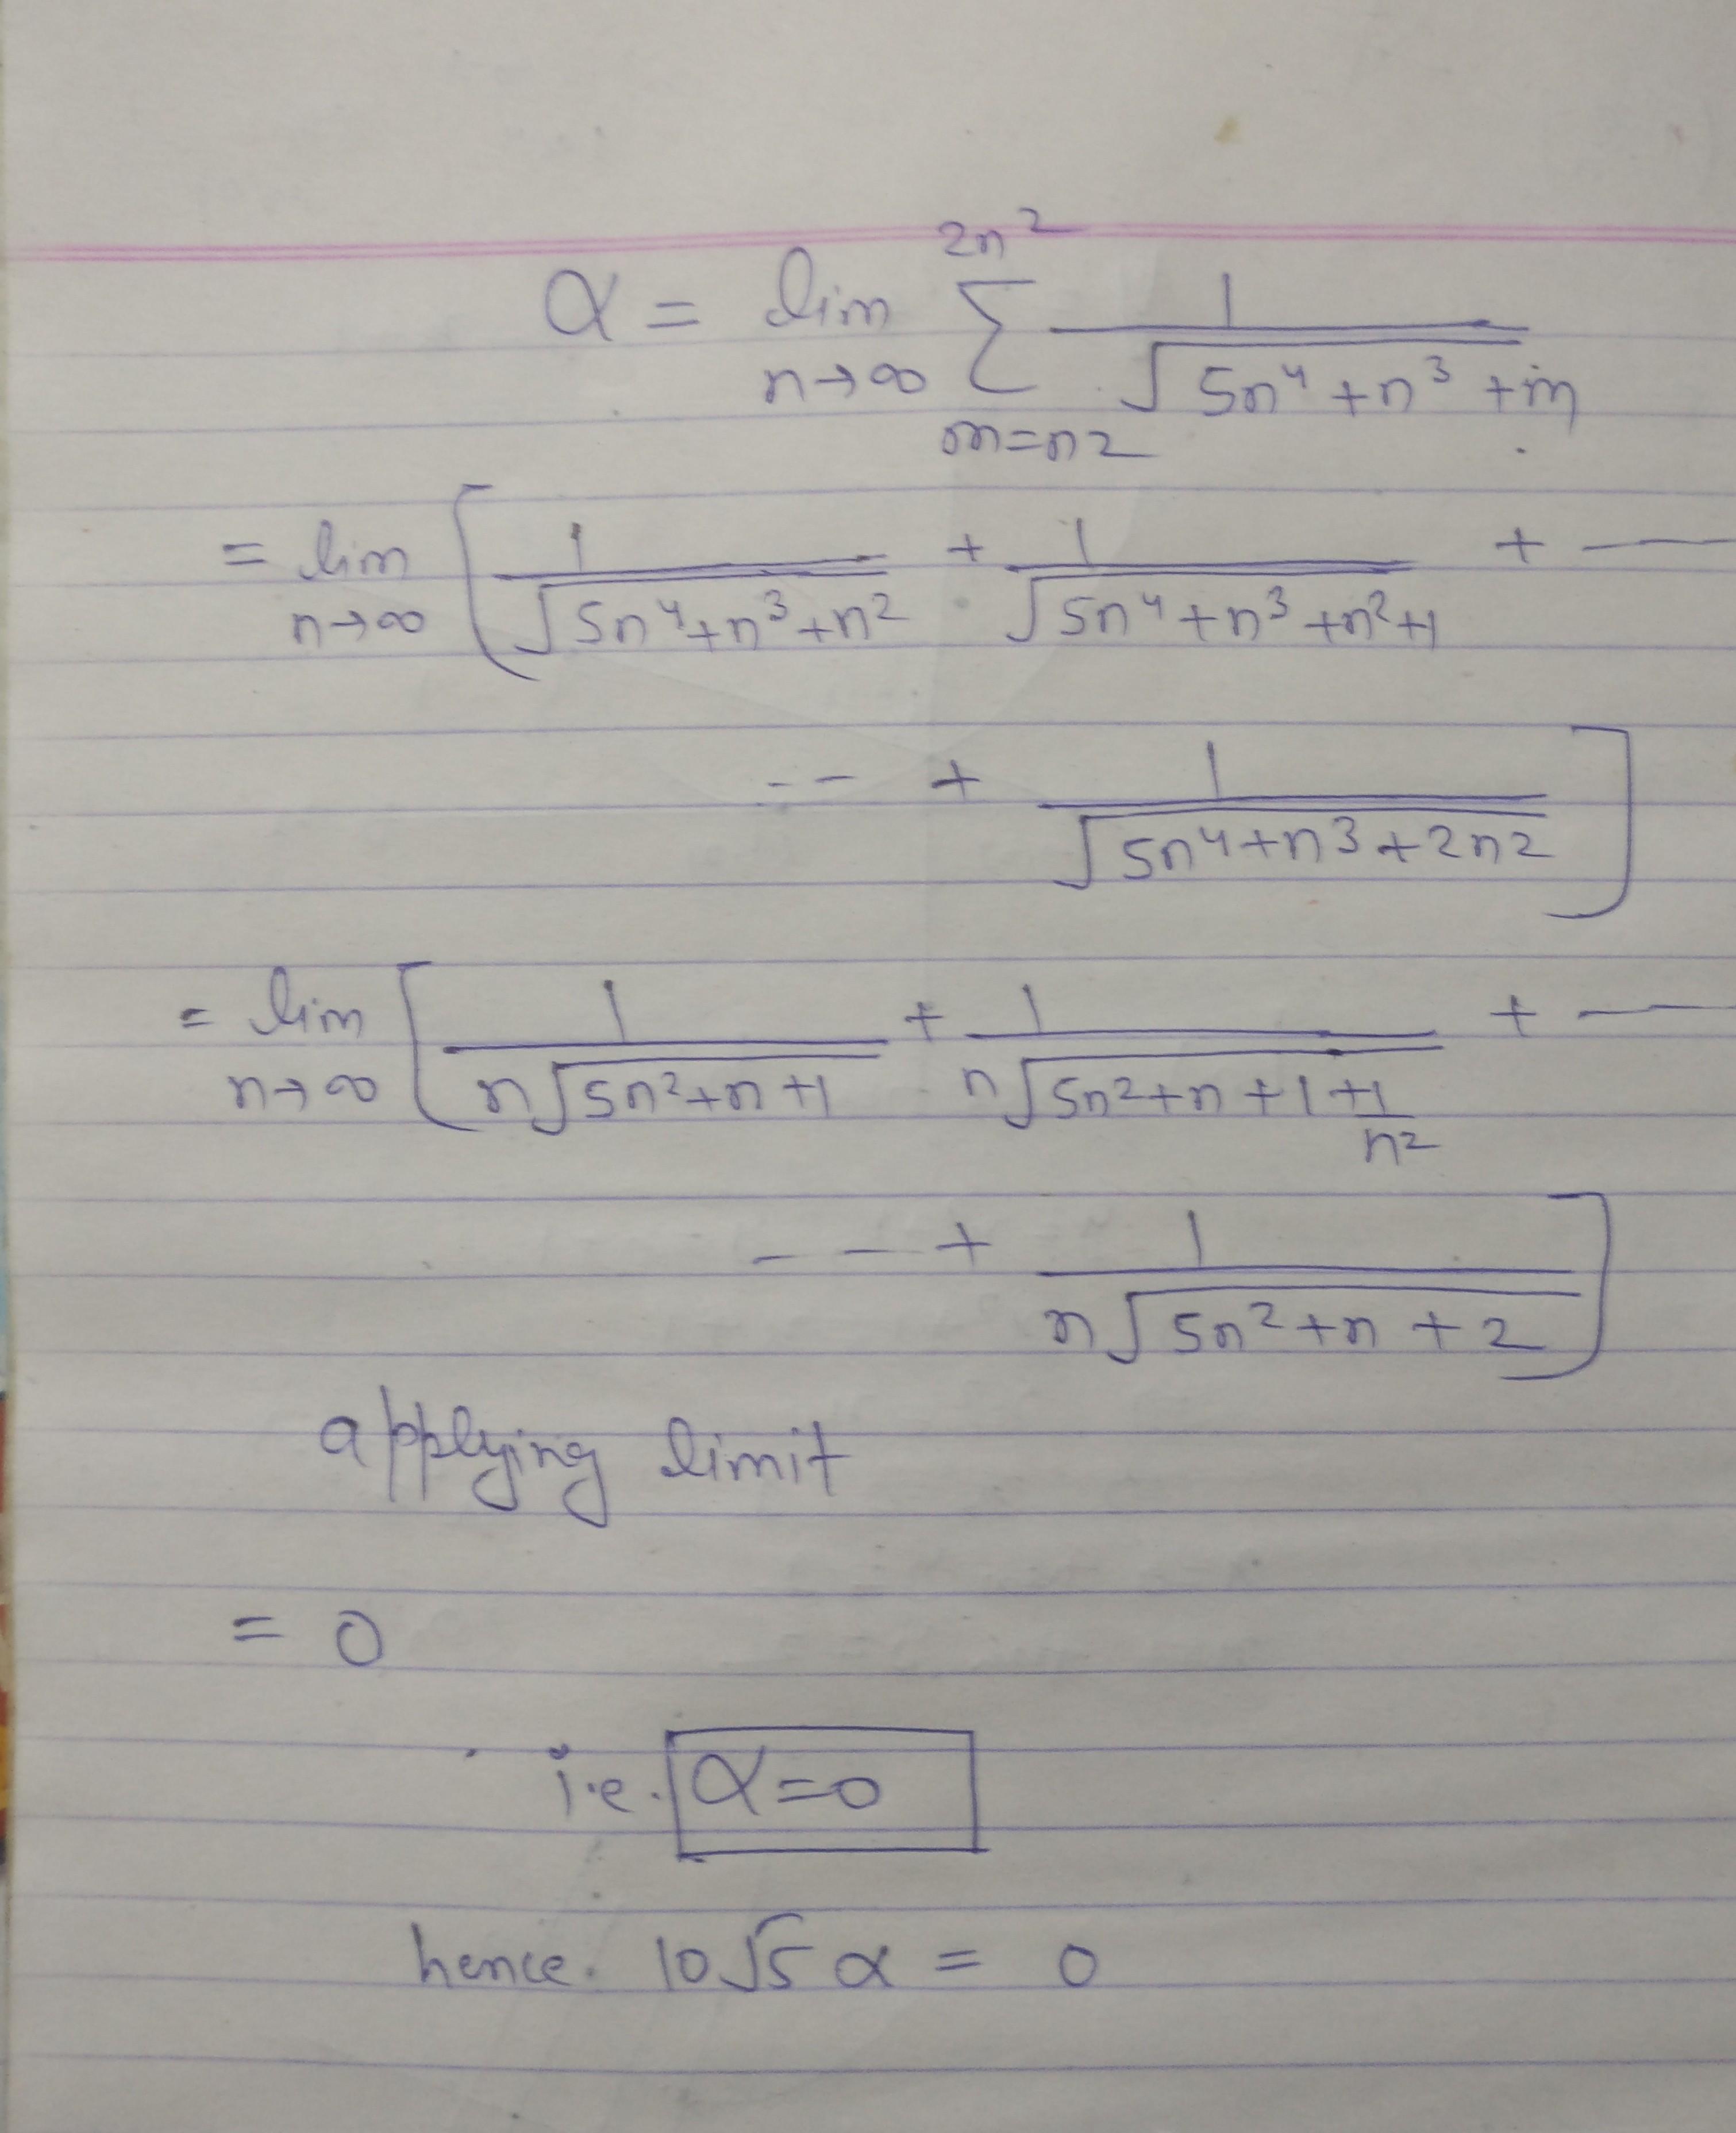 α = lim_{n→∞} ∑_{m=n2}^{2n^2} 1/√(5n^4+n^3+m)
= lim_{n→∞} [ 1/√(5n^4+n^3+n^2) + 1/√(5n^4+n^3+n^2+1) + —
-- + 1/√(5n^4+n^3+2n^2) ]
= lim_{n→∞} [ 1/(n√(5n^2+n+1)) + 1/(n√(5n^2+n+1+1/n^2)) + —
--- + 1/(n√(5n^2+n+2)) ]
applying limit
= 0
i.e. α=0
hence. 10√5 α = 0